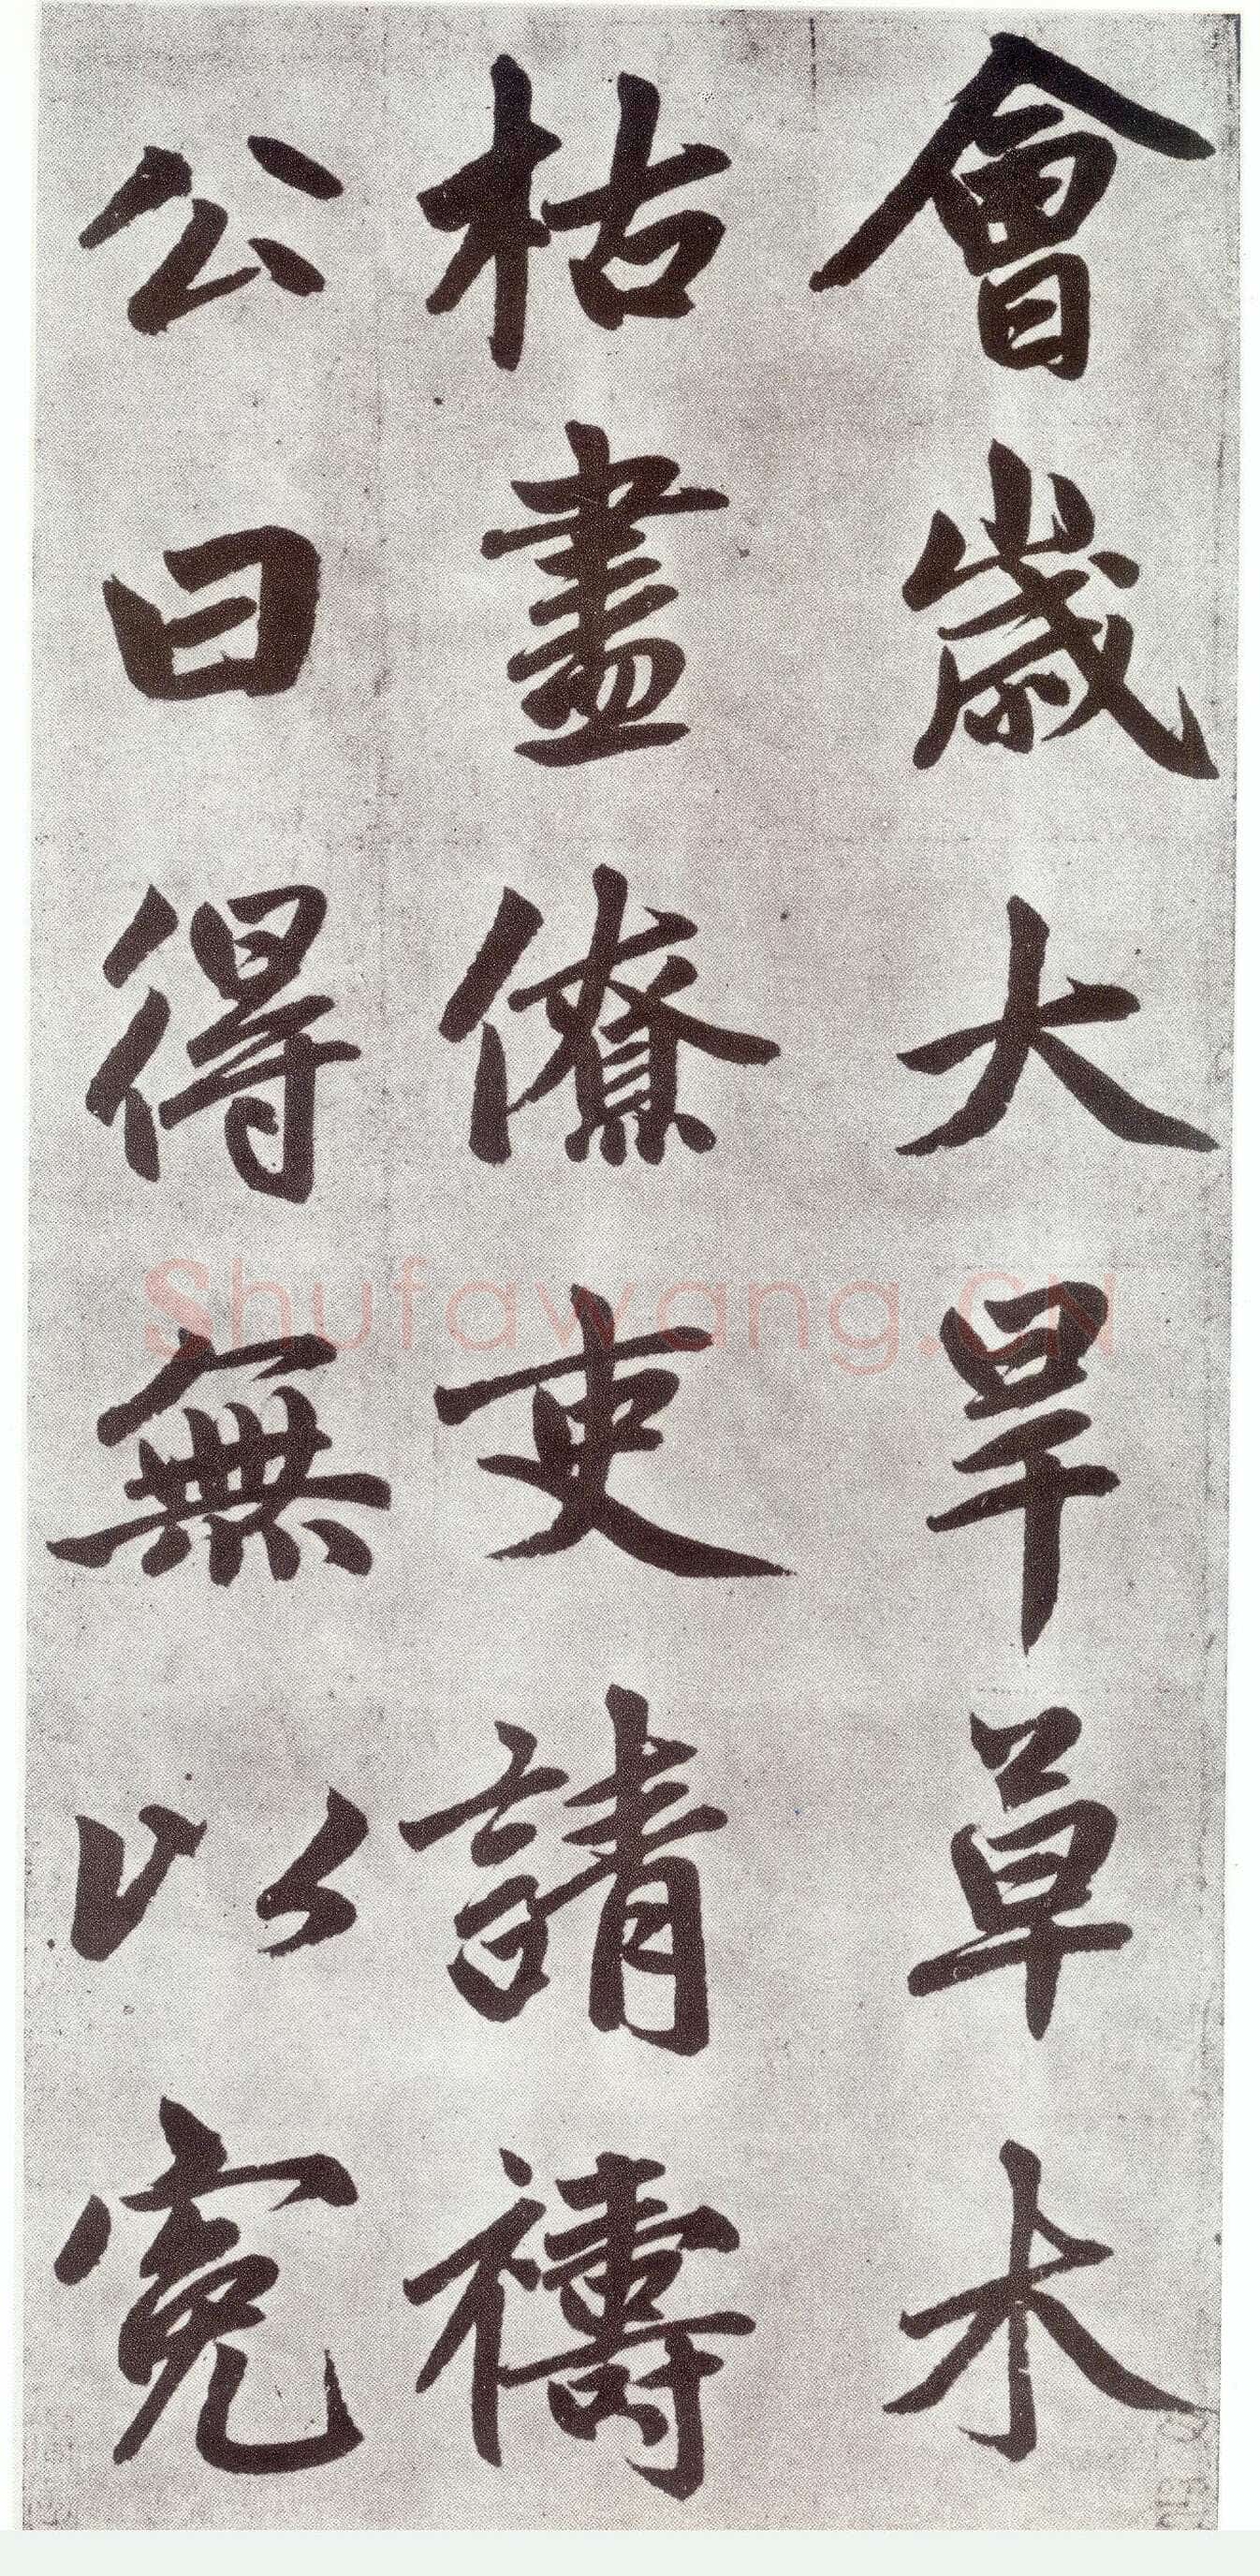 會歲大旱草木
枯盡僚吏請禱
公曰得無以寃
Shufawang.CN